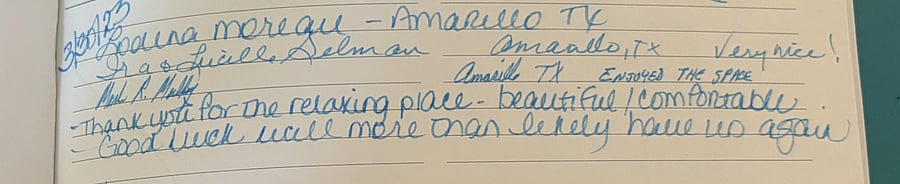 3/30/23
Lodena moregu - Amarillo TX
Ira & Lucille Selman Amarillo, TX Very nice!
Mark R. Amarillo TX ENJOYED THE SPACE
-Thank you for the relaxing place - beautiful/comfortable.
- Good luck will more than likely have us again